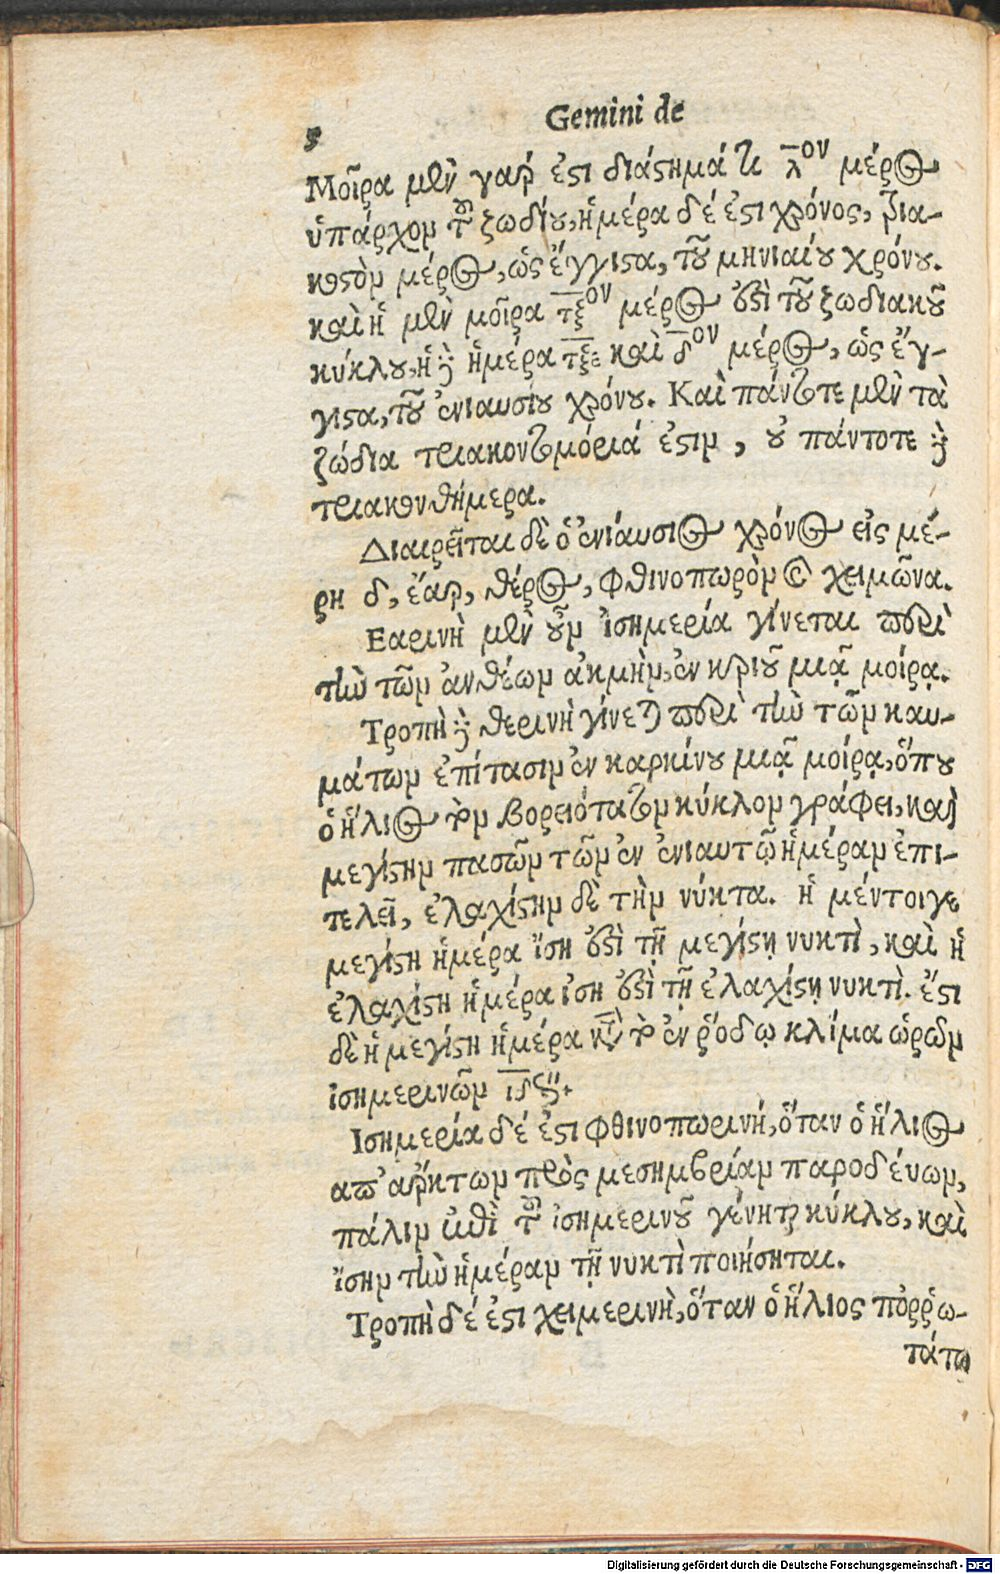 Gemini de
ς
Μοῖρα μὲν γάρ ἐστι διάστημά τι λ̅ον μέρος
ὑπάρχον τοῦ ζωδίου, ἡμέρα δέ ἐστι χρόνος, τρια-
κοστὸν μέρος, ὡς ἔγγιστα, τοῦ μηνιαίου χρόνου.
καὶ ἡ μὲν μοῖρα τ̅ξ̅ον μέρος ἐστὶ τοῦ ζωδιακοῦ
κύκλου, ἡ δὲ ἡμέρα τ̅ξ̅ε καὶ δ̅ον μέρος, ὡς ἔγ-
γιστα, τοῦ ἐνιαυσίου χρόνου. Καὶ πάντοτε μὲν τὰ
ζώδια τριακοντομόριά ἐστιν, οὐ πάντοτε δὲ
τριακονθήμερα.
Διαιρεῖται δὲ ὁ ἐνιαύσιος χρόνος εἰς μέ-
ρη δ, ἔαρ, θέρος, φθινοπωρὸν καὶ χειμῶνα.
Εαρινὴ μὲν οὖν ἰσημερία γίνεται περὶ
τὴν τῶν ἀνθέων ἀκμὴν, ἐν κριοῦ μιᾷ μοίρᾳ.
Τροπὴ δὲ θερινὴ γίνεται περὶ τὴν τῶν καυ-
μάτων ἐπίτασιν ἐν καρκίνου μιᾷ μοίρᾳ, ὅπου
ὁ ἥλιος τὸν βορειότατον κύκλον γράφει, καὶ
μεγίστην πασῶν τῶν ἐν ἐνιαυτῷ ἡμέραν ἐπι-
τελεῖ, ἐλαχίστην δὲ τὴν νύκτα. ἡ μέντοιγε
μεγίστη ἡμέρα ἴση ἐστὶ τῇ μεγίστῃ νυκτὶ, καὶ ἡ
ἐλαχίστη ἡμέρα ἴση ἐστὶ τῇ ἐλαχίστῃ νυκτὶ. ἔστι
δὲ ἡ μεγίστη ἡμέρα κατὰ τὸ ἐν ῥόδῳ κλίμα ὡρῶν
ἰσημερινῶν ι̅δ̅ς̋.
Ισημερία δέ ἐστι φθινοπωρινή, ὅταν ὁ ἥλιος
ἀπ' ἄρκτων πρὸς μεσημβρίαν παροδεύων,
πάλιν ἐπὶ τοῦ ἰσημερινοῦ γένηται κύκλου, καὶ
ἴσην τὴν ἡμέραν τῇ νυκτὶ ποιήσηται.
Τροπὴ δέ ἐστι χειμερινὴ, ὅταν ὁ ἥλιος πόῤῥω-
τάτω
Digitalisierung gefördert durch die Deutsche Forschungsgemeinschaft - DFG